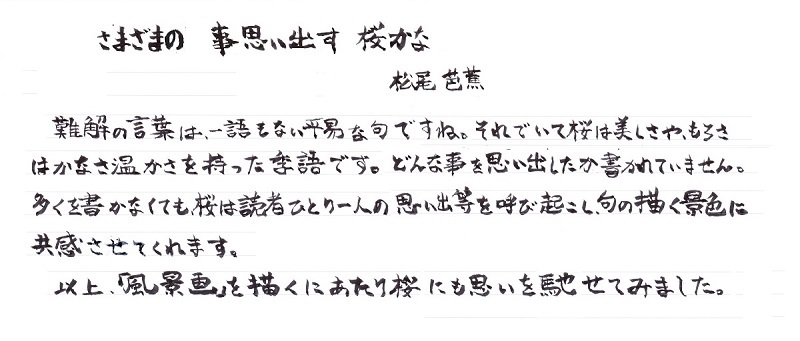 さまざまの 事思い出す 桜かな
松尾 芭蕉
難解の言葉は、一語もない平易な句ですね。それでいて桜は美しさや、もろさ
はかなさ温かさを持った季語です。どんな事を思い出したか書かれていません。
多くを書かなくても、桜は読者ひとり一人の思い出等を呼び起こし、句の描く景色に
共感させてくれます。
以上、「風景画」を描くにあたり桜にも思いを馳せてみました。